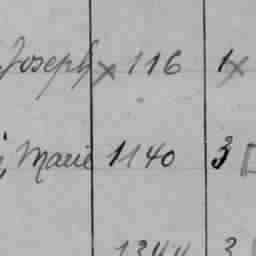 Joseph x 116 1x
, Marie 1140 3
1344 3